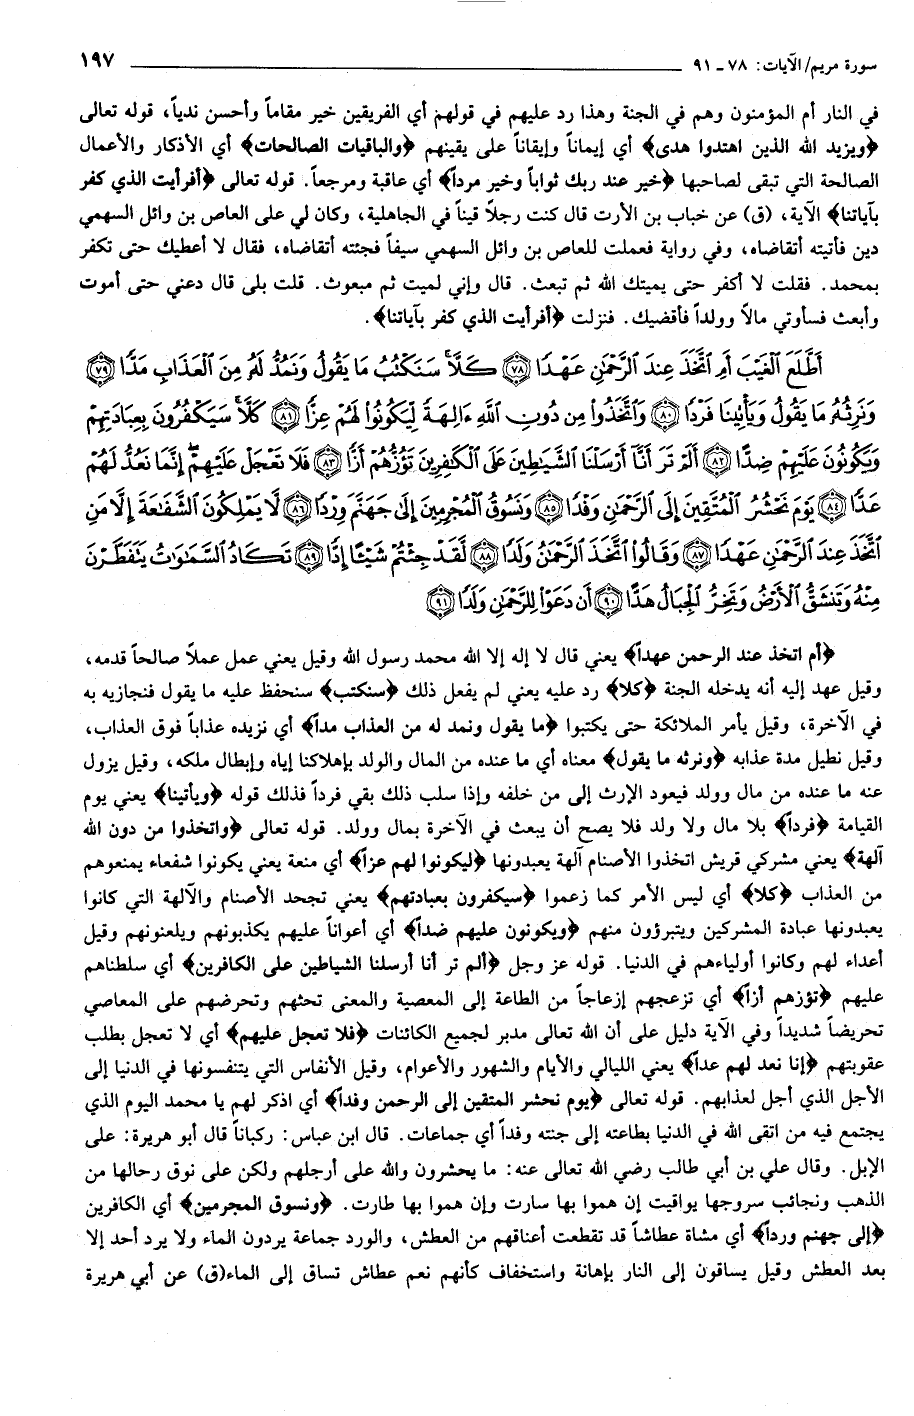 سورة مريم/الآيات: ٧٨ - ٩١ ١٩٧
في النار أم المؤمنون وهم في الجنة وهذا رد عليهم في قولهم أي الفريقين خير مقاماً وأحسن ندياً، قوله تعالى
﴿ويزيد الله الذين اهتدوا هدى﴾ أي إيماناً وإيقاناً على يقينهم ﴿والباقيات الصالحات﴾ أي الأذكار والأعمال
الصالحة التي تبقى لصاحبها ﴿خير عند ربك ثواباً وخير مرداً﴾ أي عاقبة ومرجعاً. قوله تعالى ﴿أفرأيت الذي كفر
بآياتنا﴾ الآية، (ق) عن خباب بن الأرت قال كنت رجلاً قيناً في الجاهلية، وكان لي على العاص بن وائل السهمي
دين فأتيته أتقاضاه، وفي رواية فعملت للعاص بن وائل السهمي سيفاً فجئته أتقاضاه، فقال لا أعطيك حتى تكفر
بمحمد. فقلت لا أكفر حتى يميتك الله ثم تبعث. قال وإني لميت ثم مبعوث. قلت بلى قال دعني حتى أموت
وأبعث فسأوتي مالاً وولداً فأقضيك. فنزلت ﴿أفرأيت الذي كفر بآياتنا﴾.
أَطَّلَعَ ٱلْغَيْبَ أَمِ ٱتَّخَذَ عِندَ ٱلرَّحْمَٰنِ عَهْدًا ﴿٧٨﴾ كَلَّا سَنَكْتُبُ مَا يَقُولُ وَنَمُدُّ لَهُۥ مِنَ ٱلْعَذَابِ مَدًّا ﴿٧٩﴾
وَنَرِثُهُۥ مَا يَقُولُ وَيَأْتِينَا فَرْدًا ﴿٨٠﴾ وَٱتَّخَذُوا۟ مِن دُونِ ٱللَّهِ ءَالِهَةً لِّيَكُونُوا۟ لَهُمْ عِزًّا ﴿٨١﴾ كَلَّا سَيَكْفُرُونَ بِعِبَادَتِهِمْ
وَيَكُونُونَ عَلَيْهِمْ ضِدًّا ﴿٨٢﴾ أَلَمْ تَرَ أَنَّآ أَرْسَلْنَا ٱلشَّيَٰطِينَ عَلَى ٱلْكَٰفِرِينَ تَؤُزُّهُمْ أَزًّا ﴿٨٣﴾ فَلَا تَعْجَلْ عَلَيْهِمْ إِنَّمَا نَعُدُّ لَهُمْ
عَدًّا ﴿٨٤﴾ يَوْمَ نَحْشُرُ ٱلْمُتَّقِينَ إِلَى ٱلرَّحْمَٰنِ وَفْدًا ﴿٨٥﴾ وَنَسُوقُ ٱلْمُجْرِمِينَ إِلَىٰ جَهَنَّمَ وِرْدًا ﴿٨٦﴾ لَّا يَمْلِكُونَ ٱلشَّفَٰعَةَ إِلَّا مَنِ
ٱتَّخَذَ عِندَ ٱلرَّحْمَٰنِ عَهْدًا ﴿٨٧﴾ وَقَالُوا۟ ٱتَّخَذَ ٱلرَّحْمَٰنُ وَلَدًا ﴿٨٨﴾ لَّقَدْ جِئْتُمْ شَيْـًٔا إِدًّا ﴿٨٩﴾ تَكَادُ ٱلسَّمَٰوَٰتُ يَتَفَطَّرْنَ
مِنْهُ وَتَنشَقُّ ٱلْأَرْضُ وَتَخِرُّ ٱلْجِبَالُ هَدًّا ﴿٩٠﴾ أَن دَعَوْا۟ لِلرَّحْمَٰنِ وَلَدًا ﴿٩١﴾
﴿أم اتخذ عند الرحمن عهداً﴾ يعني قال لا إله إلا الله محمد رسول الله وقيل يعني عمل عملاً صالحاً قدمه،
وقيل عهد إليه أنه يدخله الجنة ﴿كلا﴾ رد عليه يعني لم يفعل ذلك ﴿سنكتب﴾ سنحفظ عليه ما يقول فنجازيه به
في الآخرة، وقيل يأمر الملائكة حتى يكتبوا ﴿ما يقول ونمد له من العذاب مداً﴾ أي نزيده عذاباً فوق العذاب،
وقيل نطيل مدة عذابه ﴿ونرثه ما يقول﴾ معناه أي ما عنده من المال والولد بإهلاكنا إياه وإبطال ملكه، وقيل يزول
عنه ما عنده من مال وولد فيعود الإرث إلى من خلفه وإذا سلب ذلك بقي فرداً فذلك قوله ﴿ويأتينا﴾ يعني يوم
القيامة ﴿فرداً﴾ بلا مال ولا ولد فلا يصح أن يبعث في الآخرة بمال وولد. قوله تعالى ﴿واتخذوا من دون الله
آلهة﴾ يعني مشركي قريش اتخذوا الأصنام آلهة يعبدونها ﴿ليكونوا لهم عزاً﴾ أي منعة يعني يكونوا شفعاء يمنعوهم
من العذاب ﴿كلا﴾ أي ليس الأمر كما زعموا ﴿سيكفرون بعبادتهم﴾ يعني تجحد الأصنام والآلهة التي كانوا
يعبدونها عبادة المشركين ويتبرؤون منهم ﴿ويكونون عليهم ضداً﴾ أي أعواناً عليهم يكذبونهم ويلعنونهم وقيل
أعداء لهم وكانوا أولياءهم في الدنيا. قوله عز وجل ﴿ألم تر أنا أرسلنا الشياطين على الكافرين﴾ أي سلطناهم
عليهم ﴿تؤزهم أزاً﴾ أي تزعجهم إزعاجاً من الطاعة إلى المعصية والمعنى تحثهم وتحرضهم على المعاصي
تحريضاً شديداً وفي الآية دليل على أن الله تعالى مدبر لجميع الكائنات ﴿فلا تعجل عليهم﴾ أي لا تعجل بطلب
عقوبتهم ﴿إنا نعد لهم عداً﴾ يعني الليالي والأيام والشهور والأعوام، وقيل الأنفاس التي يتنفسونها في الدنيا إلى
الأجل الذي أجل لعذابهم. قوله تعالى ﴿يوم نحشر المتقين إلى الرحمن وفداً﴾ أي اذكر لهم يا محمد اليوم الذي
يجتمع فيه من اتقى الله في الدنيا بطاعته إلى جنته وفداً أي جماعات. قال ابن عباس: ركباناً قال أبو هريرة: على
الإبل. وقال علي بن أبي طالب رضي الله تعالى عنه: ما يحشرون والله على أرجلهم ولكن على نوق رحالها من
الذهب ونجائب سروجها يواقيت إن هموا بها سارت وإن هموا بها طارت. ﴿ونسوق المجرمين﴾ أي الكافرين
﴿إلى جهنم ورداً﴾ أي مشاة عطاشاً قد تقطعت أعناقهم من العطش، والورد جماعة يردون الماء ولا يرد أحد إلا
بعد العطش وقيل يساقون إلى النار بإهانة واستخفاف كأنهم نعم عطاش تساق إلى الماء(ق) عن أبي هريرة